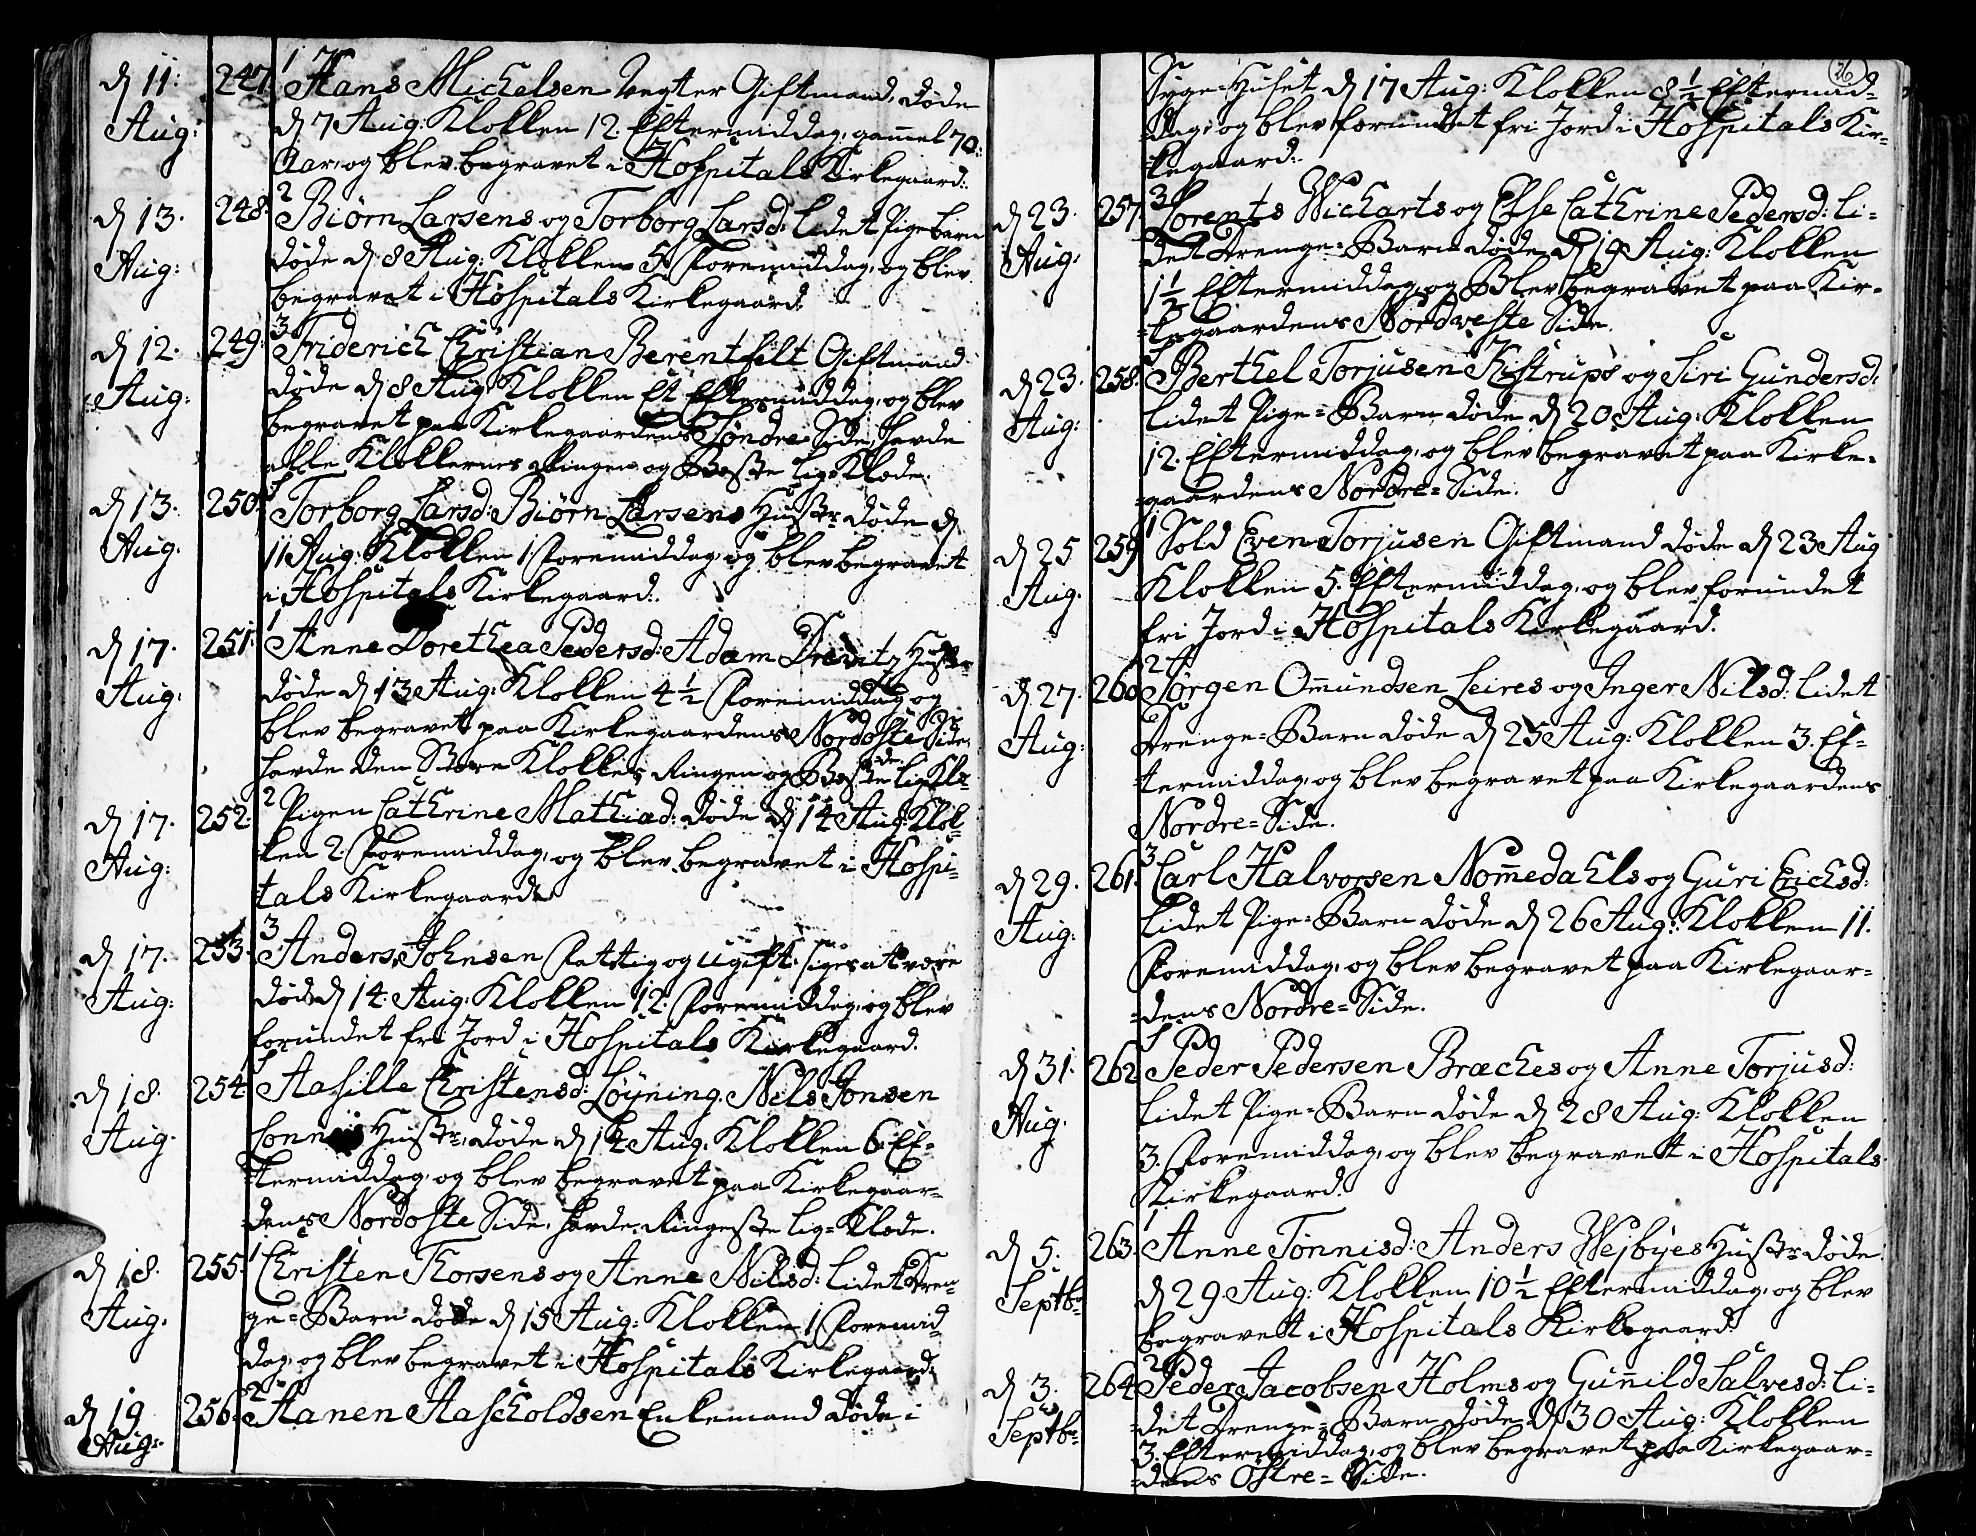 d 11: 247. 1 Hans Michelsen Vegter Giftmand, døde
Aug: d 7 Aug: Klokken 12 Eftermiddag, gam̄el 70:
Aar, og blev begravet i Hospitals Kirkegaard.
d 13. 248. 2 Biørn Larsens og Torborg Larsd: lidet Pige barn
Aug: døde d 8 Aug: Klokken 5 Foremiddag, og blev
begravet i Hospitals Kirkegaard.
d 12. 249. 3 Friderich Christian Berentfelt Giftmand
Aug: døde d 8 Aug: Klokken Et Eftermiddag, og blev
begravet paa Kirkegaardens Søndre Side, havde
alle Klokkernes Ringen og Beste Lig-Klæde.
d 13. 250. Torborg Larsd: Biørn Larsens Hustr: døde d
Aug. 11 Aug: Klokken 1 Foremiddag, og blev begravet
i Hospitals Kirkegaard.
d 17. 251. 1 Anne Dorethea Pedersd: Adam Drewitz Hustr:
Aug: døde d 13 Aug: Klokken 4 1/2 Foremiddag og
blev begravet paa Kirkegaardens Nordoste Side,
havde den Store Klokkes Ringen og Beste Lig Klæ-
de.
d 17. 252. 2 Pigen Cathrine Mathiæd: døde d 14 Aug: Klok-
Aug: ken 2. Foremiddag, og blev begravet i Hospi-
tals Kirkegaard.
d 17. 253. 3 Anders Johnsen Fattig og ugift: siges at være
Aug: død d 14. Aug: Klokken 12. Foremiddag, og blev
forundet fri Jord i Hospitals Kirkegaard.
d 18. 254. Aasille Christensd: Løyning. Nils Jonsen
Aug. Hustr: døde d 14 Aug. Klokken 6 Ef-
termiddag, og blev begravet paa Kirkegaar-
dens Nordoste Side, havde Ringeste Lig-Klæde.
d 18. 255. 1 Christen Thorsens og Anne Nilsd: lidet Dren-
Aug. ge-Barn døde d 15 Aug: Klokken 1 Foremid-
dag, og blev begravet i Hospitals Kirkegaard.
d 19 256. 2 Hanen Aascholdsen Enkemand døde i
Aug:
26
Syge-Huset d 17 Aug: Klokken 8 1/2 Eftermid-
dag, og blev forundet fri Jord i Hospitals Kir-
kegaard.
d 23. 257. 3 Lorents Wicharts og Else Cathrine Pedersd: li-
Aug. det Drenge-Barn døde d 19 Aug: Klokken
1 1/2 Eftermiddag, og Blev begravet paa Kir-
kegaardens Nordveste Side.
d 23. 258. Berthel Torjusen Kistrups og Siri Gundersd:
Aug: lidet Pige-Barn døde d 20 Aug: Klokken
12. Eftermiddag, og blev begravet paa Kirke-
gaardens Nordre-Side.
d 25 259 1 Sold Even Torjusen Giftmand døde d 23 Aug
Aug. Klokken 5. Eftermiddag, og blev forundet
fri Jord i Hospitals Kirkegaard.
d 27. 260 2 Jørgen Om̄undsen Leires og Inger Nilsd: lidet
Aug: Drenge-Barn døde d 25 Aug: Klokken 3. Ef-
termiddag, og blev begravet paa Kirkegaardens
Nordre-Side.
d 29. 261. 3 Carl Halvorsen Nom̄edahls og Guri Erichsd:
Aug: lidet Pige-Barn døde d 26 Aug: Klokken 11.
Foremiddag, og blev begravet paa Kirkegaar-
dens Nordre-Side.
d 31. 262 Peder Pedersen Bræches og Anne Torjusd:
Aug. lidet Pige-Barn døde d 28 Aug: Klokken
3. Foremiddag, og blev begravet i Hospitals
Kirkegaard.
d 5. 263. 1 Anne Tønnisd: Anders Wejbyes Hustr: døde
Septbr d 29. Aug: Klokken 10 1/2 Eftermiddag, og blev
begravet i Hospitals Kirkegaard.
d 3. 264. 2 Peder Jacobsen Holms og Gun̄ild Salvesd: li-
Septbr det Drenge-Barn døde d 30 Aug: Klokken
3. Eftermiddag, og blev begravet paa Kirkegaar-
dens Ostre-Side.